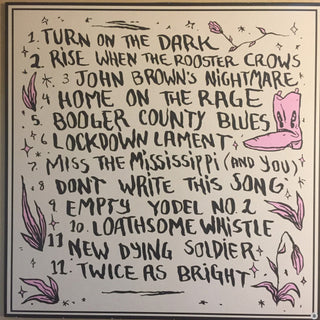 1. TURN ON THE DARK
2. RISE WHEN THE ROOSTER CROWS
3 JOHN BROWN'S NIGHTMARE
4 HOME ON THE RAGE
5. BOOGER COUNTY BLUES
6 LOCKDOWN LAMENT
7. MISS THE MISSISSIPPI (AND YOU)
8 DONT WRITE THIS SONG
9 EMPTY YODEL NO. 2
10. LOATHSOME WHISTLE
11 NEW DYING SOLDIER
12. TWICE AS BRIGHT